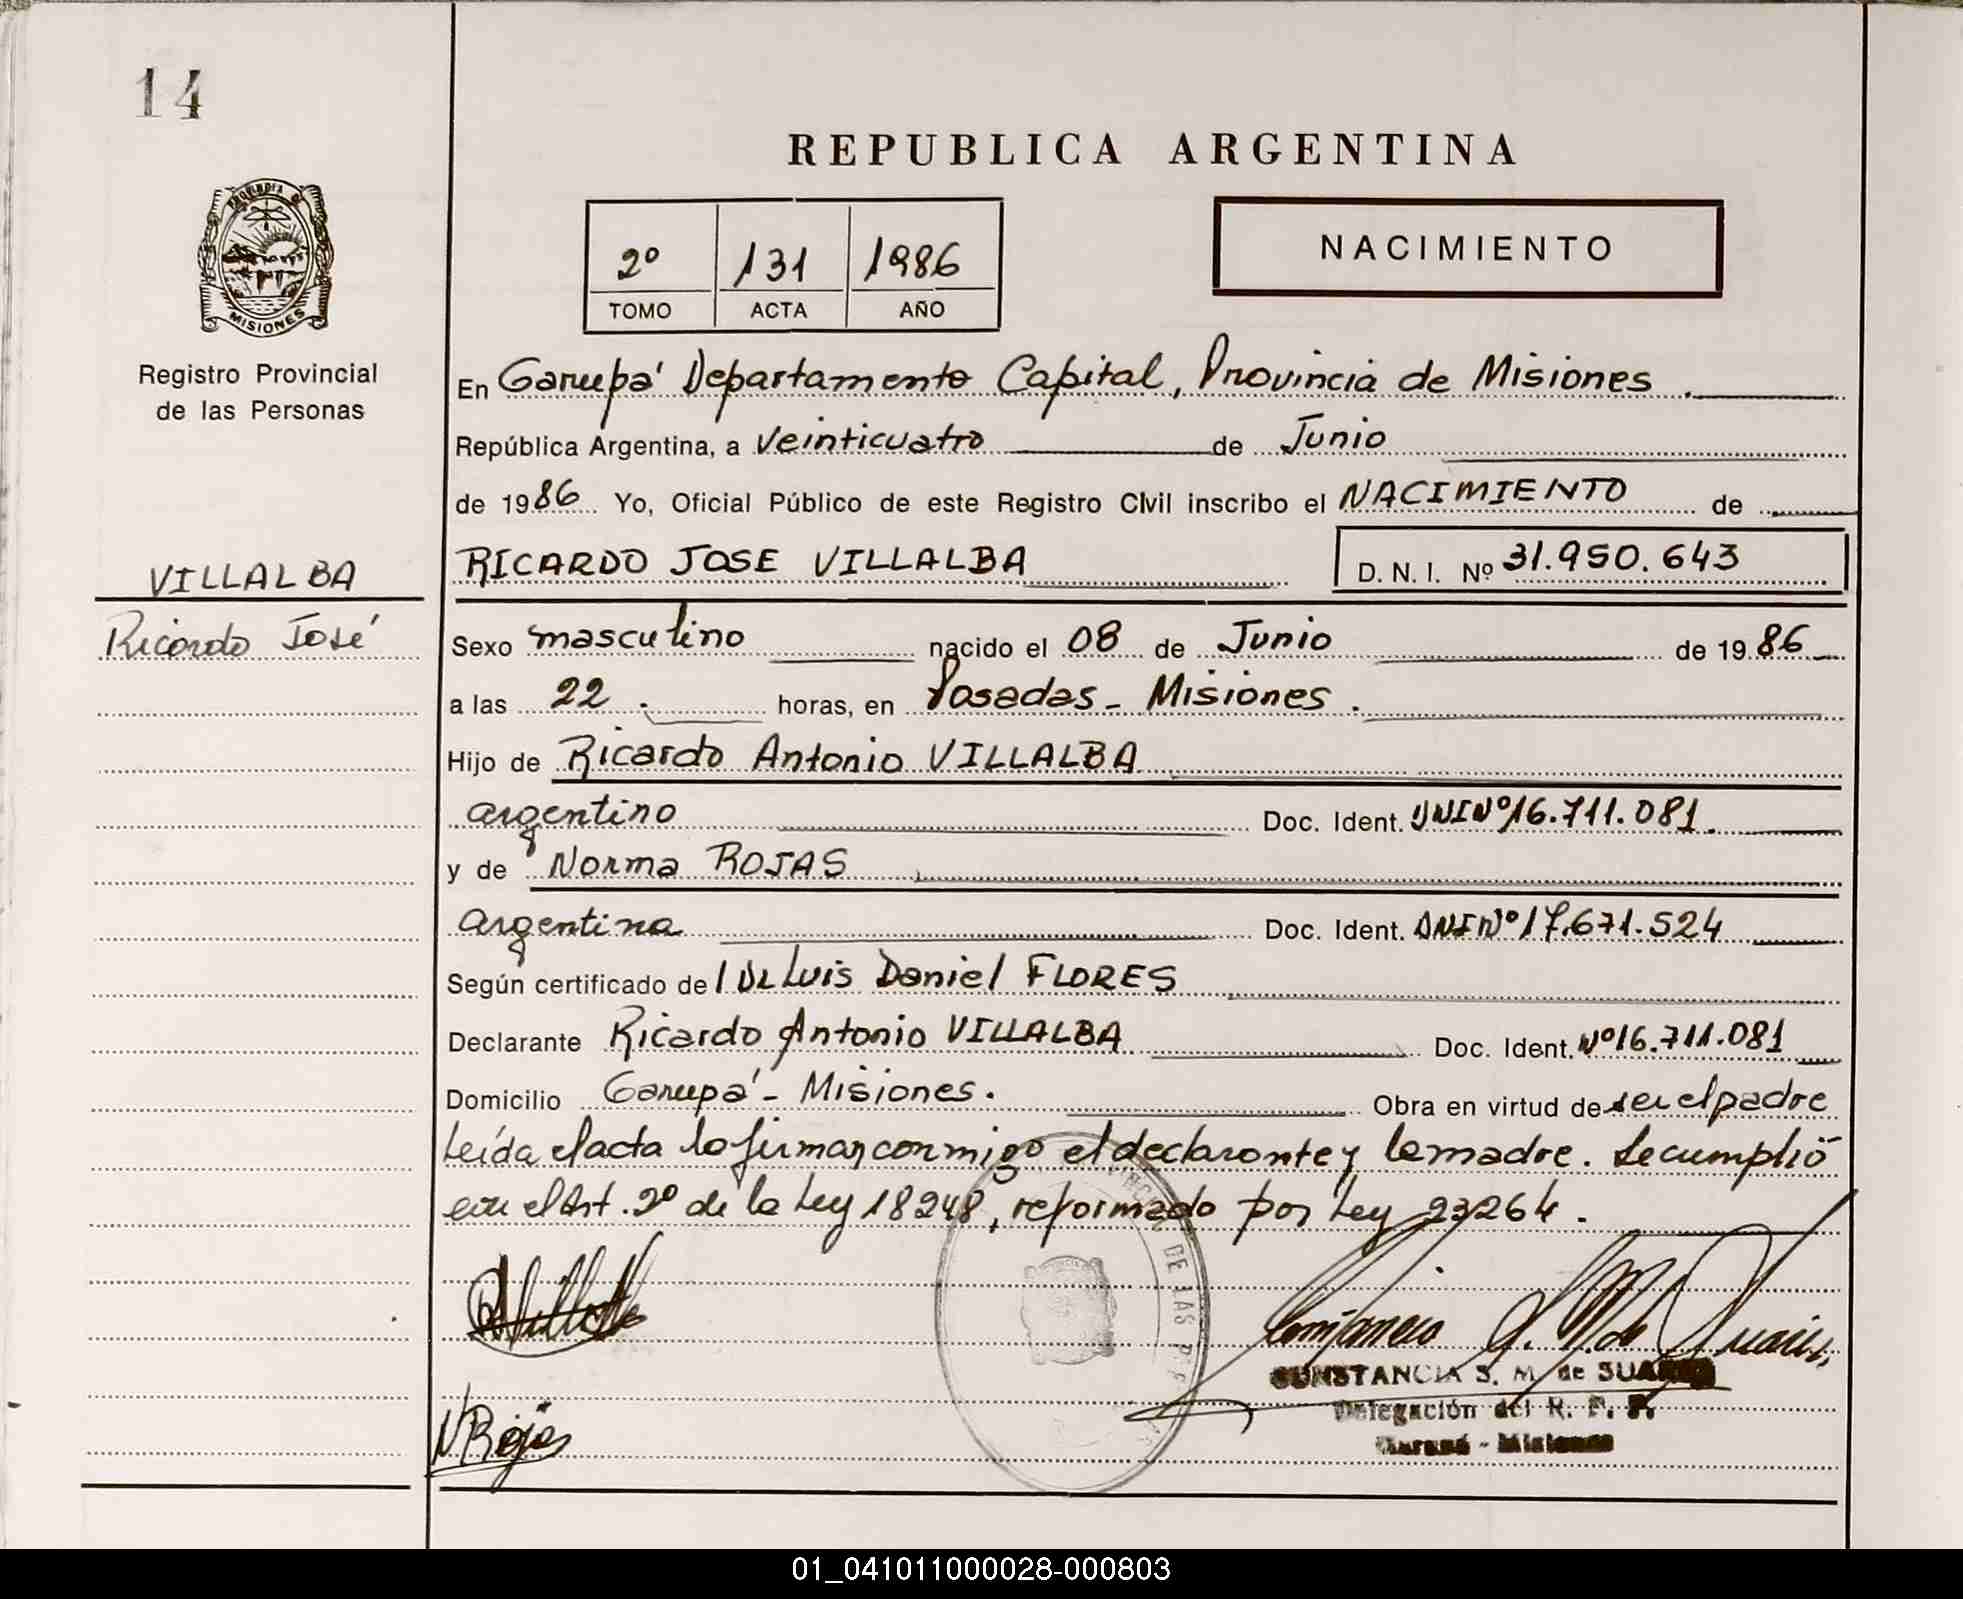 14
REPUBLICA ARGENTINA
PROVINCIA DE
MISIONES
2º 131 1986
TOMO ACTA AÑO
NACIMIENTO
Registro Provincial
de las Personas
En Garupá Departamento Capital, Provincia de Misiones.
República Argentina, a veinticuatro de Junio
de 1986 Yo, Oficial Público de este Registro Civil inscribo el NACIMIENTO de
VILLALBA
Ricardo José
RICARDO JOSE VILLALBA D. N. I. Nº 31.950.643
Sexo masculino nacido el 08 de Junio de 1986
a las 22. horas, en Posadas - Misiones.
Hijo de Ricardo Antonio VILLALBA
argentino Doc. Ident. DNI Nº 16.711.081.
y de Norma ROJAS
argentina Doc. Ident. DNI Nº 17.671.524
Según certificado del Dr Luis Daniel FLORES
Declarante Ricardo Antonio VILLALBA Doc. Ident. Nº 16.711.081
Domicilio Garupá - Misiones. Obra en virtud de ser el padre
Leída el acta lo firman conmigo el declarante y la madre. Se cumplió
con el Art. 2º de la Ley 18248, reformado por Ley 23264.
DE LAS
N Rojas
CONSTANCIA S. M. de SUAREZ
Delegación del R. P. P.
Garupá - Misiones
01_041011000028-000803